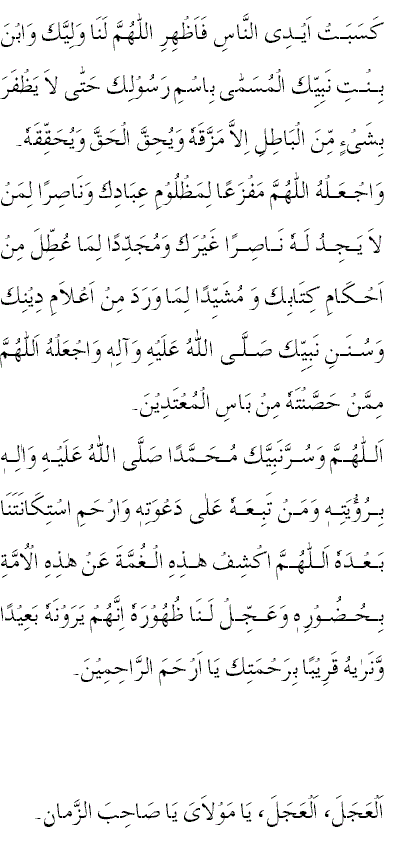 كَسَبَتْ اَيْدِى النَّاسِ فَاَظْهِرِ اللّٰهُمَّ لَنَا وَلِيَّكَ وَابْنَ
بِنْتِ نَبِيِّكَ الْمُسَمّٰى بِاسْمِ رَسُوْلِكَ حَتّٰى لاَ يَظْفَرَ
بِشَىْءٍ مِّنَ الْبَاطِلِ اِلاَّ مَزَّقَهٗ وَيُحِقَّ الْحَقَّ وَيُحَقِّقَهٗ۔
وَاجْعَلْهُ اللّٰهُمَّ مَفْزَعًا لِمَظْلُوْمِ عِبَادِكَ وَنَاصِرًا لِمَنْ
لاَ يَجِدُ لَهٗ نَاصِرًا غَيْرَكَ وَمُجَدِّدًا لِمَا عُطِّلَ مِنْ
اَحْكَامِ كِتَابِكَ وَ مُشَيِّدًا لِمَا وَرَدَ مِنْ اَعْلاَمِ دِيْنِكَ
وَسُنَنِ نَبِيِّكَ صَلَّى اللّٰهُ عَلَيْهِ وَآلِهٖ وَاجْعَلْهُ اَللّٰهُمَّ
مِمَّنْ حَصَّنْتَهٗ مِنْ بَاسِ الْمُعْتَدِيْنَ۔
اَللّٰهُمَّ وَسُرَّنَبِيَّكَ مُحَمَّدًا صَلَّى اللّٰهُ عَلَيْهِ وَاٰلِهٖ
بِرُؤْيَتِهٖ وَمَنْ تَبِعَهٗ عَلٰى دَعْوَتِهٖ وَارْحَمِ اسْتِكَانَتَنَا
بَعْدَهٗ اَللّٰهُمَّ اكْشِفْ هٰذِهِ الْغُمَّةَ عَنْ هٰذِهِ الْاُمَّةِ
بِحُضُوْرِهٖ وَعَجِّلْ لَنَا ظُهُوْرَهٗ اِنَّهُمْ يَرَوْنَهٗ بَعِيْدًا
وَّنَرٰيهُ قَرِيْبًا بِرَحْمَتِكَ يَا اَرْحَمَ الرَّاحِمِيْنَ۔
اَلْعَجَلَ، اَلْعَجَلَ، يَا مَوْلاَىَ يَا صَاحِبَ الزَّمَانِ۔